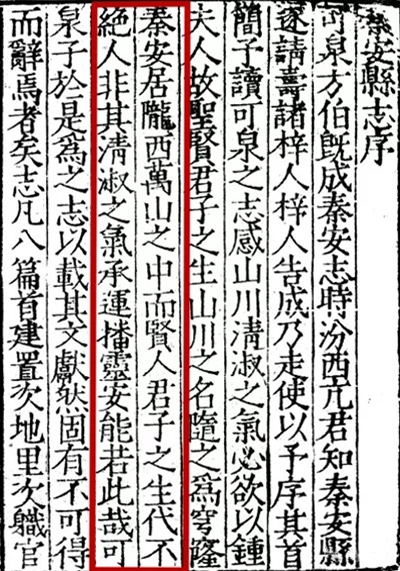 秦安縣志序
可泉方伯旣成秦安志時汾西亢君知秦安縣
遂請壽諸梓人梓人告成乃走使以予序其首
簡子讀可泉之志感山川淸淑之氣必欲以鍾
夫人故聖賢君子之生山川之名隨之爲穹窿
秦安居隴西萬山之中而賢人君子之生代不
絕人非其淸淑之氣承運播靈安能若此哉可
泉子於是爲之志以載其文獻然固有不可得
而辭焉者矣志凡八篇首建置次地里次職官